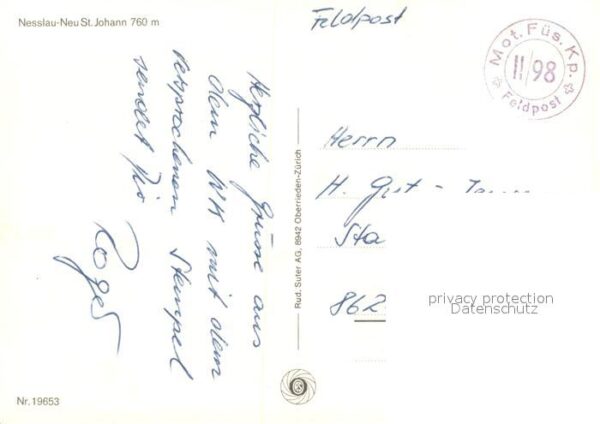 Nesslau-Neu St. Johann 760 m
Herzliche Grüsse aus
dem WK mit dem
versprochenen Stempel
sendet Dir
Roger
Nr. 19653
Rud. Suter AG, 8942 Oberrieden-Zürich
Feldpost
Mot. Füs. Kp.
II/98
Feldpost
Herrn
H. Gut -
Sta
862
privacy protection
Datenschutz